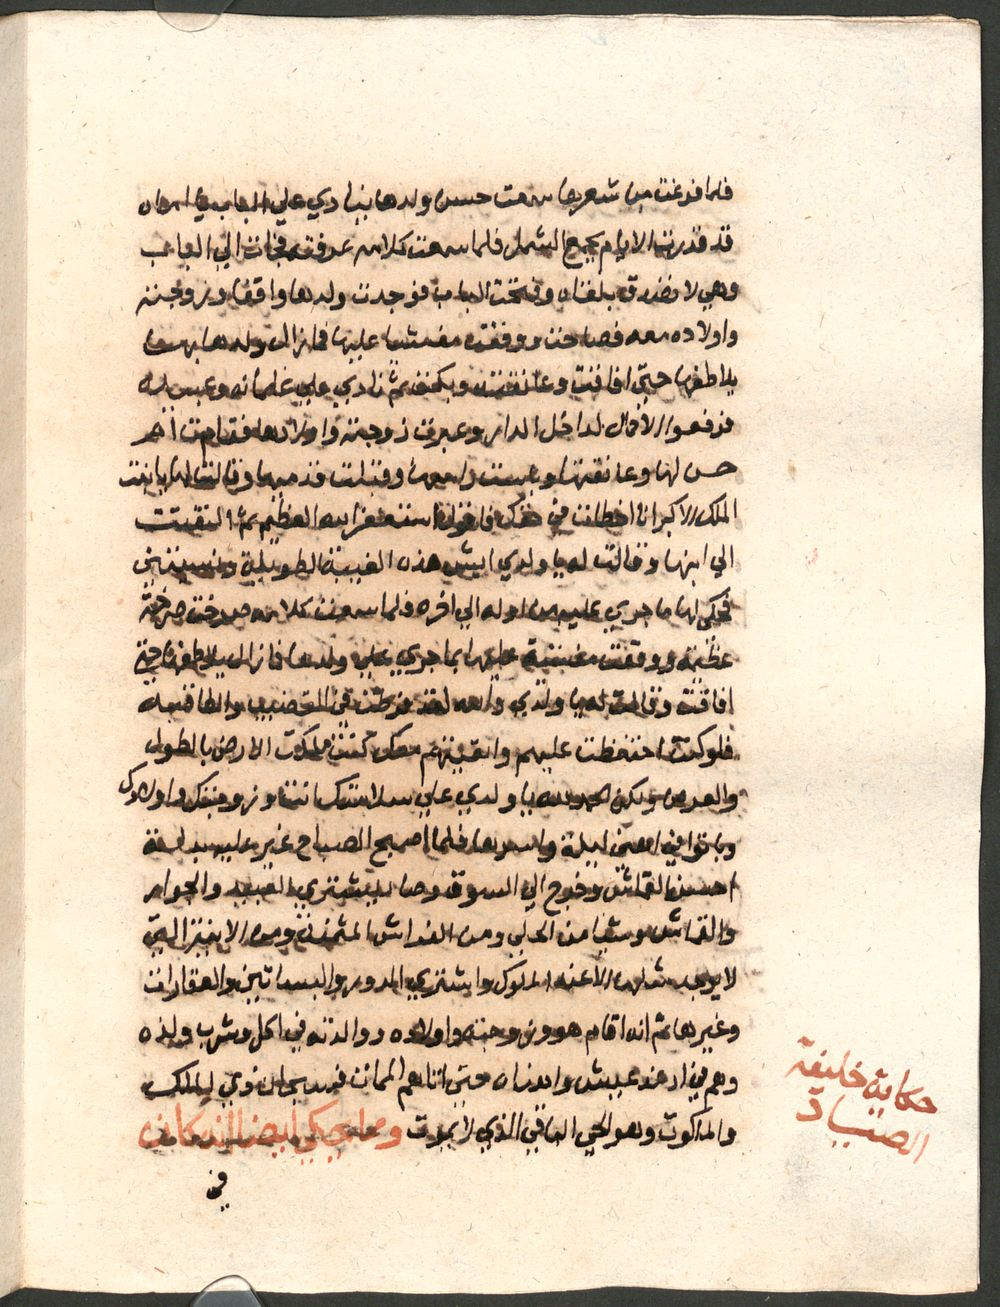 فلما فرغت من شعرها سمعت حسن ولدها ينادي علي الباب يا اماه
قد قدرت الايام بجمع الشمل فلما سمعت كلامه عرفته فجات الي الباب
وهي لا تصدق بلقاه وفتحت الباب فوجدت ولدها واقفا وزوجته
واولاده معه فصاحت ووقعت مغشيا عليها فمازال ولدها بها
يلاطفها حتي افاقت وعانقته وبكت ثم نادي علي غلمانه وعبيده
فرفعوا الاحمال لداخل الدار وعبرت زوجته واولادها فقامت ام
حسن لها وعانقتها وباست راسها وقبلت قدميها وقالت لها يا بنت
الملك الاكبر انا اخطات في حقك فانا استغفر الله العظيم ثم التفتت
الي ابنها وقالت له يا ولدي ايش هذه الغيبة الطويلة ونسيتني
فحكي لها ما جري عليه من اوله الي اخره فلما سمعت كلامه صرخت صرخة
عظيمة ووقعت مغشية عليها بما جري علي ولدها فازال يلاطفها حتي
افاقت وقالت له يا ولدي والله لقد فرطت في القضيب والطاقية
فلو كنت احتفظت عليهم وابقيتهم معك كنت ملكت الارض بالطول
والعرض ولكن الحمد لله يا ولدي علي سلامتك انت وزوجتك واولادك
وباتوا في اهني ليلة واسرها فلما اصبح الصباح غير عليه بدلة
احسن القماش وخرج الي السوق وصار يشتري العبيد والجوار
والقماش وشيا من الحلي ومن الفراش المثمن ومن الاشيا التي
لا يوجد مثلها الا عند الملوك واشتري الدور والبساتين والعقارات
وغيرها ثم انه اقام هو وزوجته واولاده ووالدته في اكل وشرب ولذه
وهم في ارغد عيش واهناه حتي اتاهم الممات فسبحان ذي الملك
والملكوت وهو الحي الباقي الذي لا يموت ومما يحكي ايضا انه كان
في
حكاية خليفة
الصياد